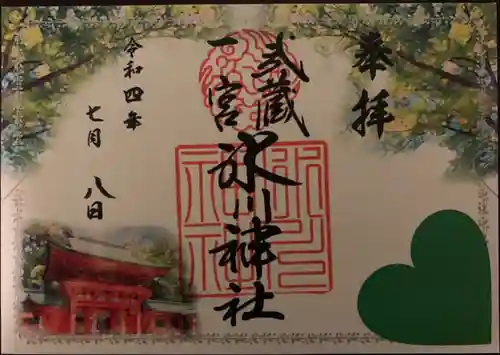 奉拝
武蔵
一宮
氷川神社
令和四年
七月八日